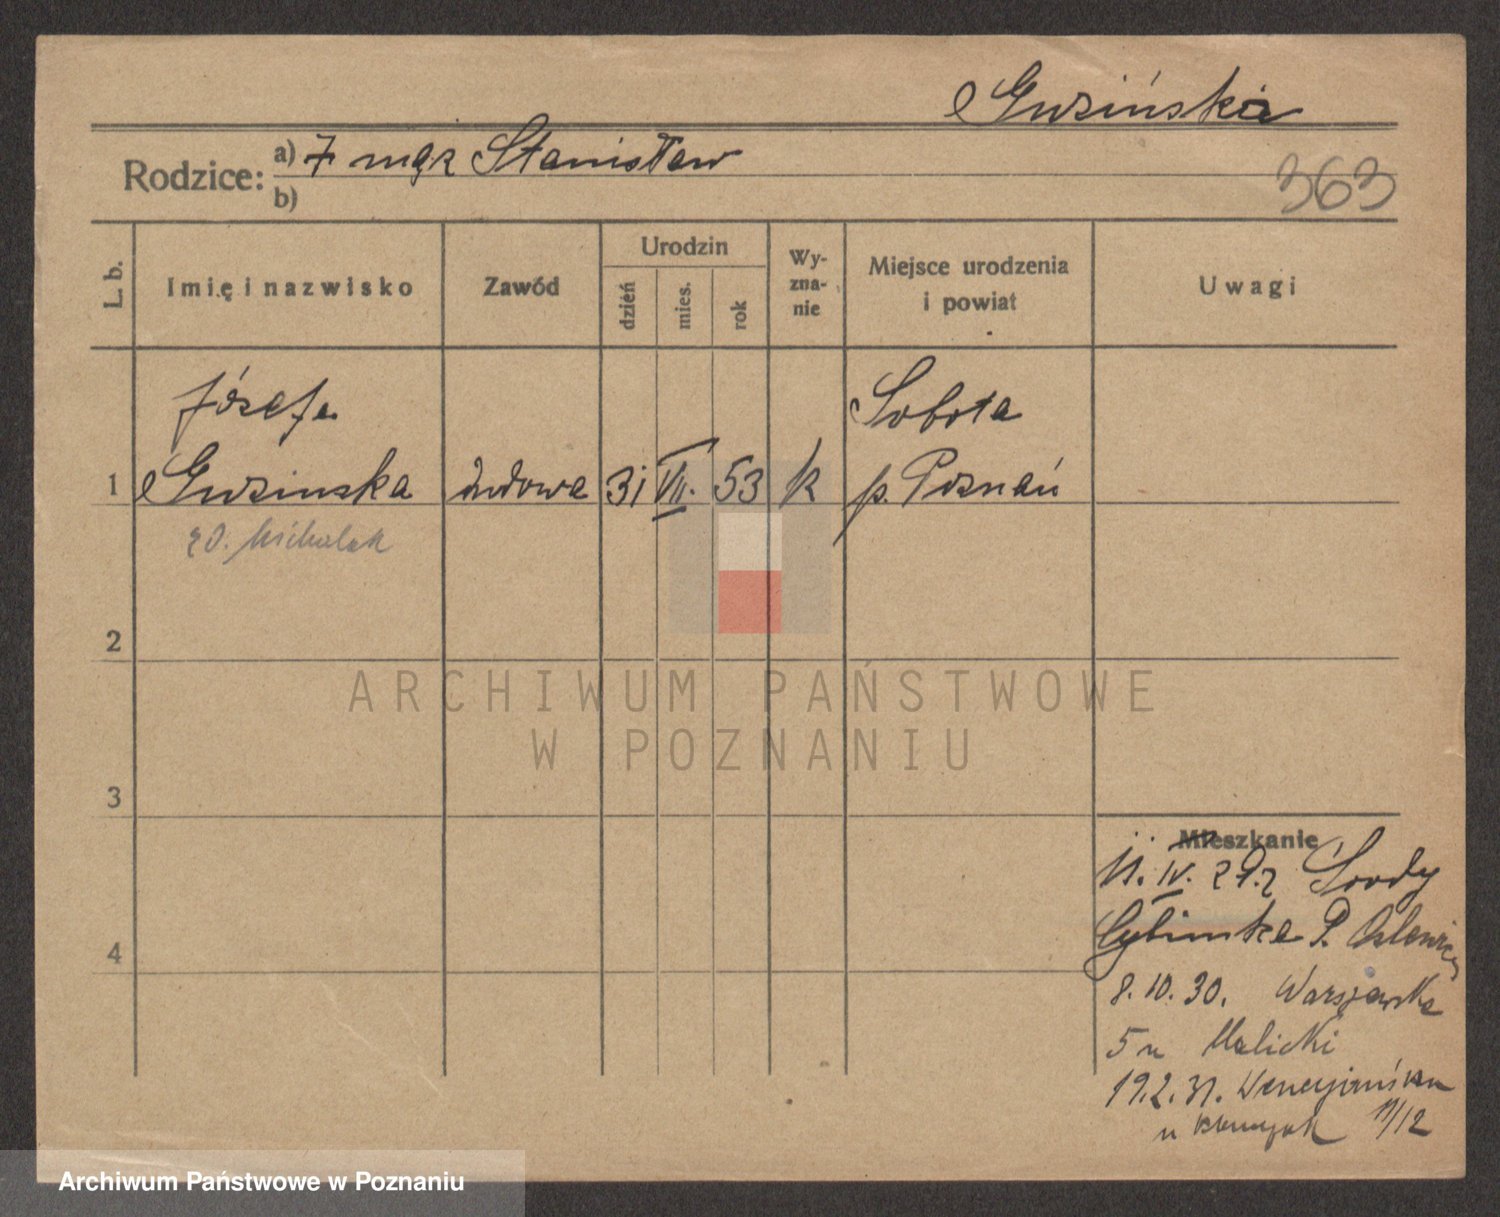 Guzińska
Rodzice: a) Ϯ mąż Stanisław
b)
363
L. b.
Imię i nazwisko
Zawód
Urodzin
dzień
mies.
rok
Wy-
zna-
nie
Miejsce urodzenia
i powiat
Uwagi
Józefa
Sobota
1 Guzinska wdowa 31 VII. 53 k p. Poznań
zd. Michalak
2
ARCHIWUM PAŃSTWOWE
W POZNANIU
3
Mieszkanie
11. IV. 29. z Środy
Cybinska
4
8. 10. 30. Warszawska
5 u Malicki
19. 2. 31. Wenecjańska
u 11/12
Archiwum Państwowe w Poznaniu